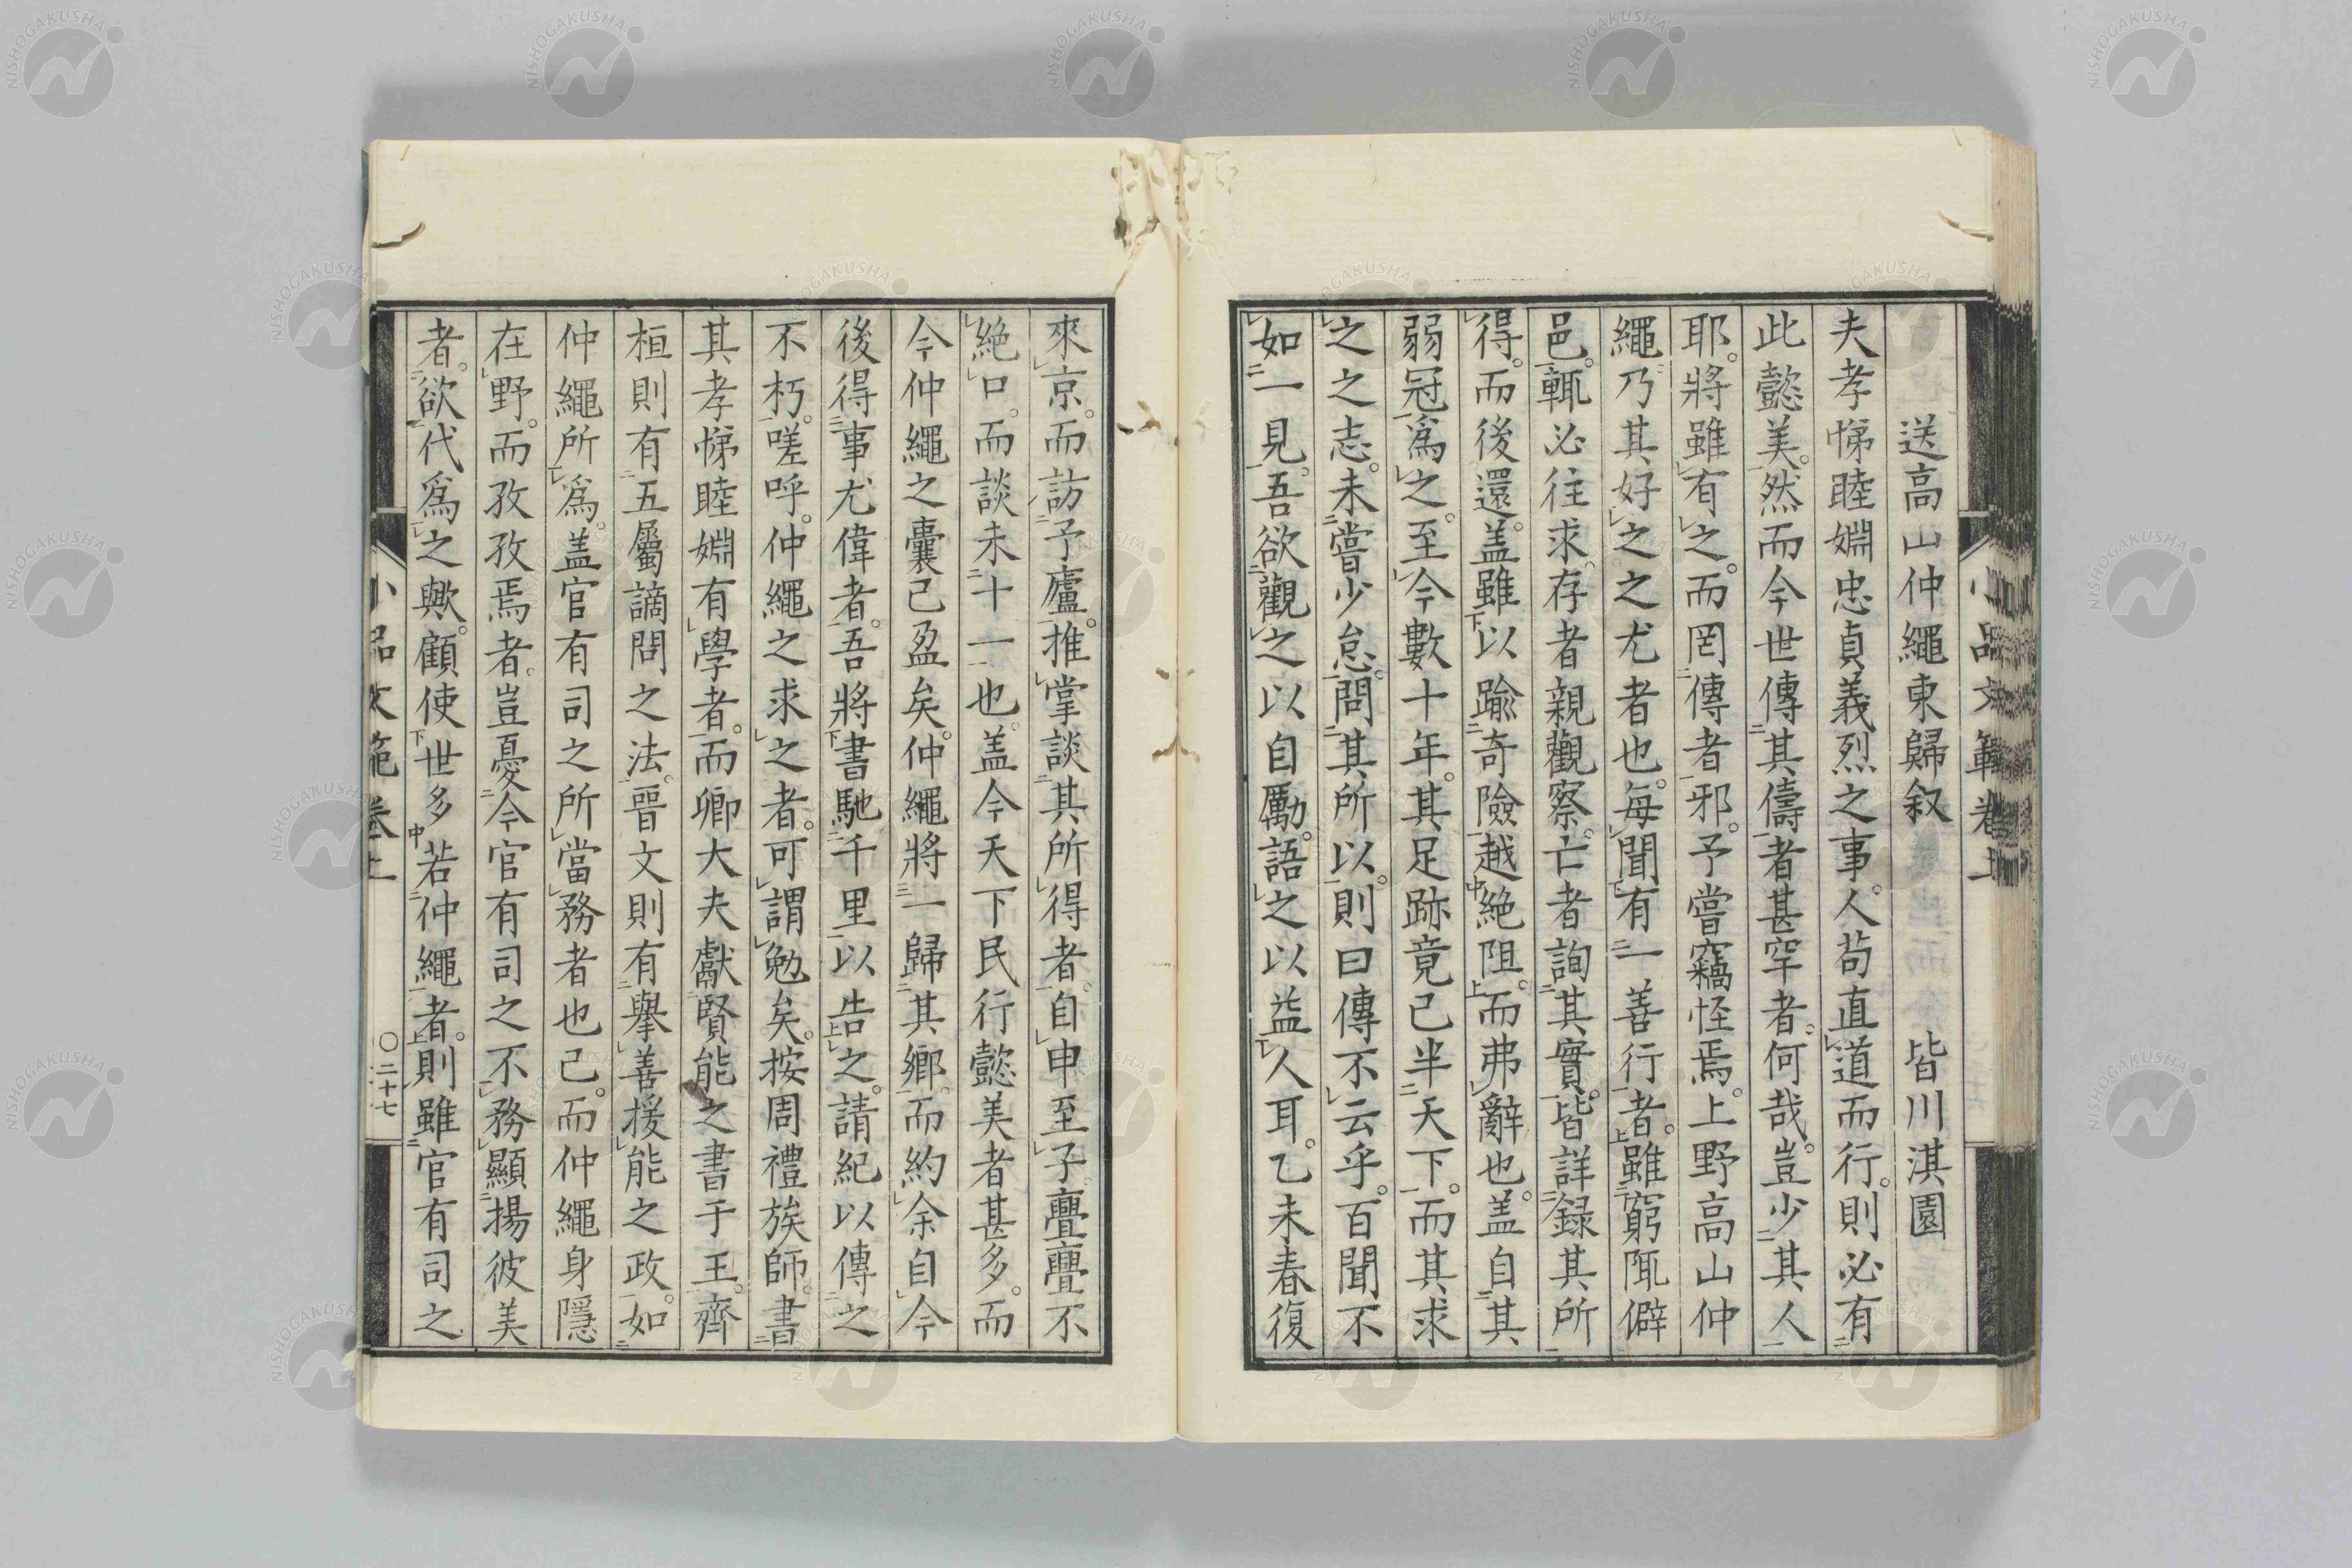 送高山仲繩東歸叙 皆川淇園
夫孝悌睦婣忠貞義烈之事。人苟直道而行。則必有
此懿美。然而今世傳其儔者甚罕者。何哉。豈少其人
耶。將雖有之。而罔傳者邪。予嘗竊怪焉。上野高山仲
繩乃其好之之尤者也。每聞有一善行者。雖窮陬僻
邑。輒必往求。存者親觀察。亡者詢其實。皆詳録其所
得。而後還。盖雖以踰奇險越絶阻。而弗辭也。盖自其
弱冠爲之。至今數十年。其足跡竟已半天下。而其求
之之志。未嘗少怠。問其所以。則曰傳不云乎。百聞不
如一見。吾欲觀之以自勵。語之以益人耳。乙未春復
來京。而訪予廬。推掌談其所得者。自申至子亹亹不
絶口。而談未十一也。盖今天下民行懿美者甚多。而
今仲繩之囊已盈矣。仲繩將一歸其鄉。而約余自今
後得事尤偉者。吾將書馳千里以告之。請紀以傳之
不朽。嗟呼。仲繩之求之者。可謂勉矣。按周禮族師。書
其孝悌睦婣有學者。而卿大夫獻賢能之書于王。齊
桓則有五屬謫問之法。晉文則有擧善援能之政。如
仲繩所爲。盖官有司之所當務者也已。而仲繩身隱
在野。而孜孜焉者。豈憂今官有司之不務顯揚彼美
者。欲代爲之歟。顧使世多若仲繩者。則雖官有司之
小品文範卷上 〇二十七
小品文範卷上
NISHOGAKUSHA